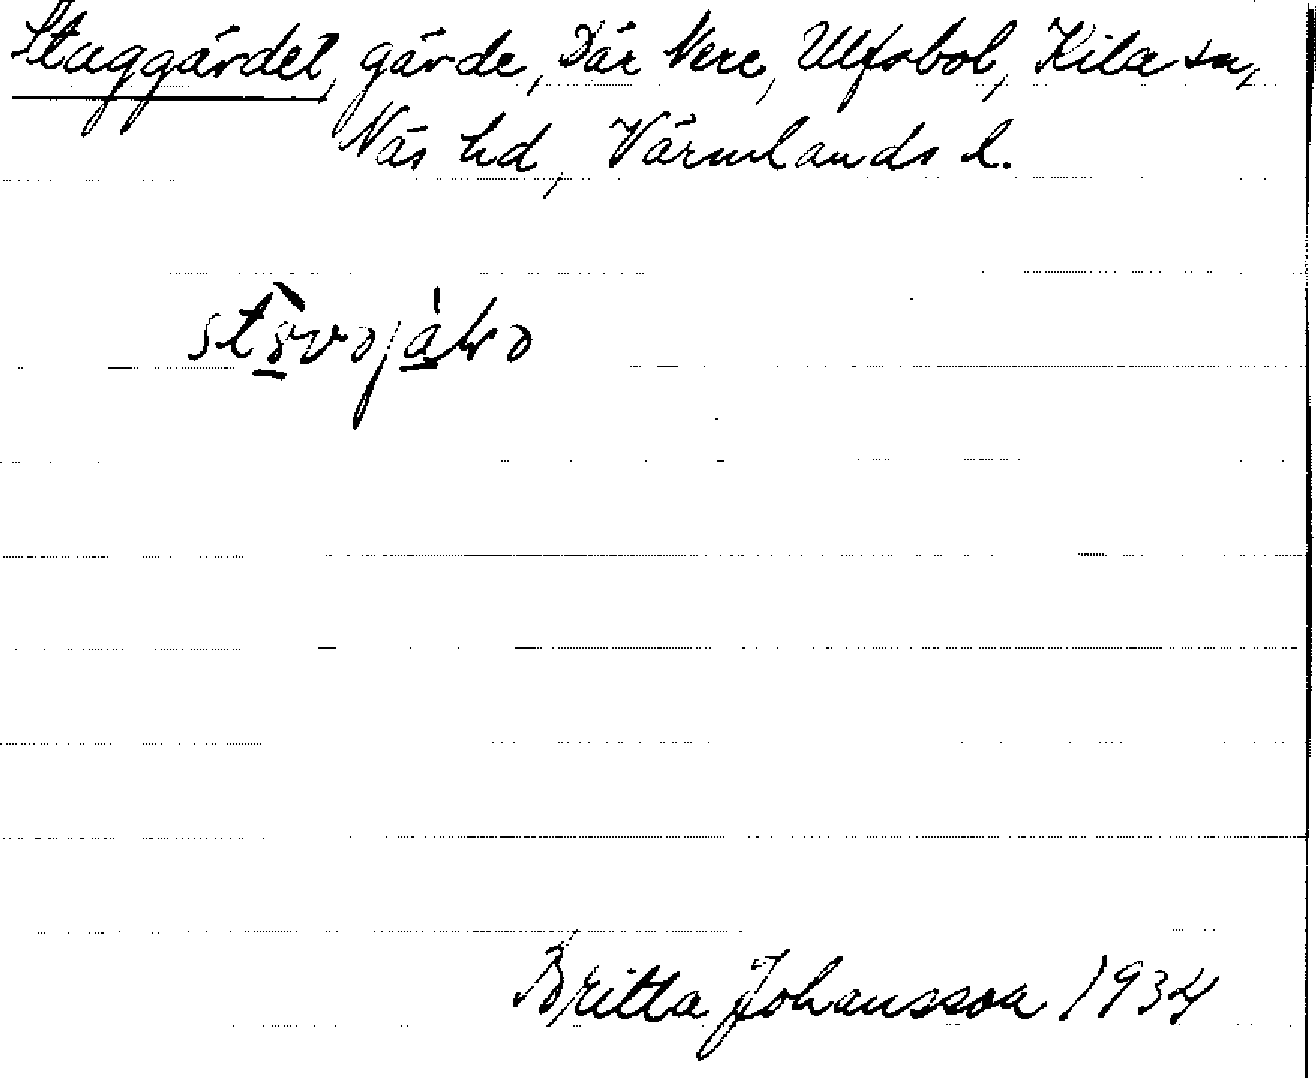 Stuggärdet, gärde, Där Nere, Ulfsbol, Kila sn,
Näs hd, Värmlands l.
Britta Johansson 1934